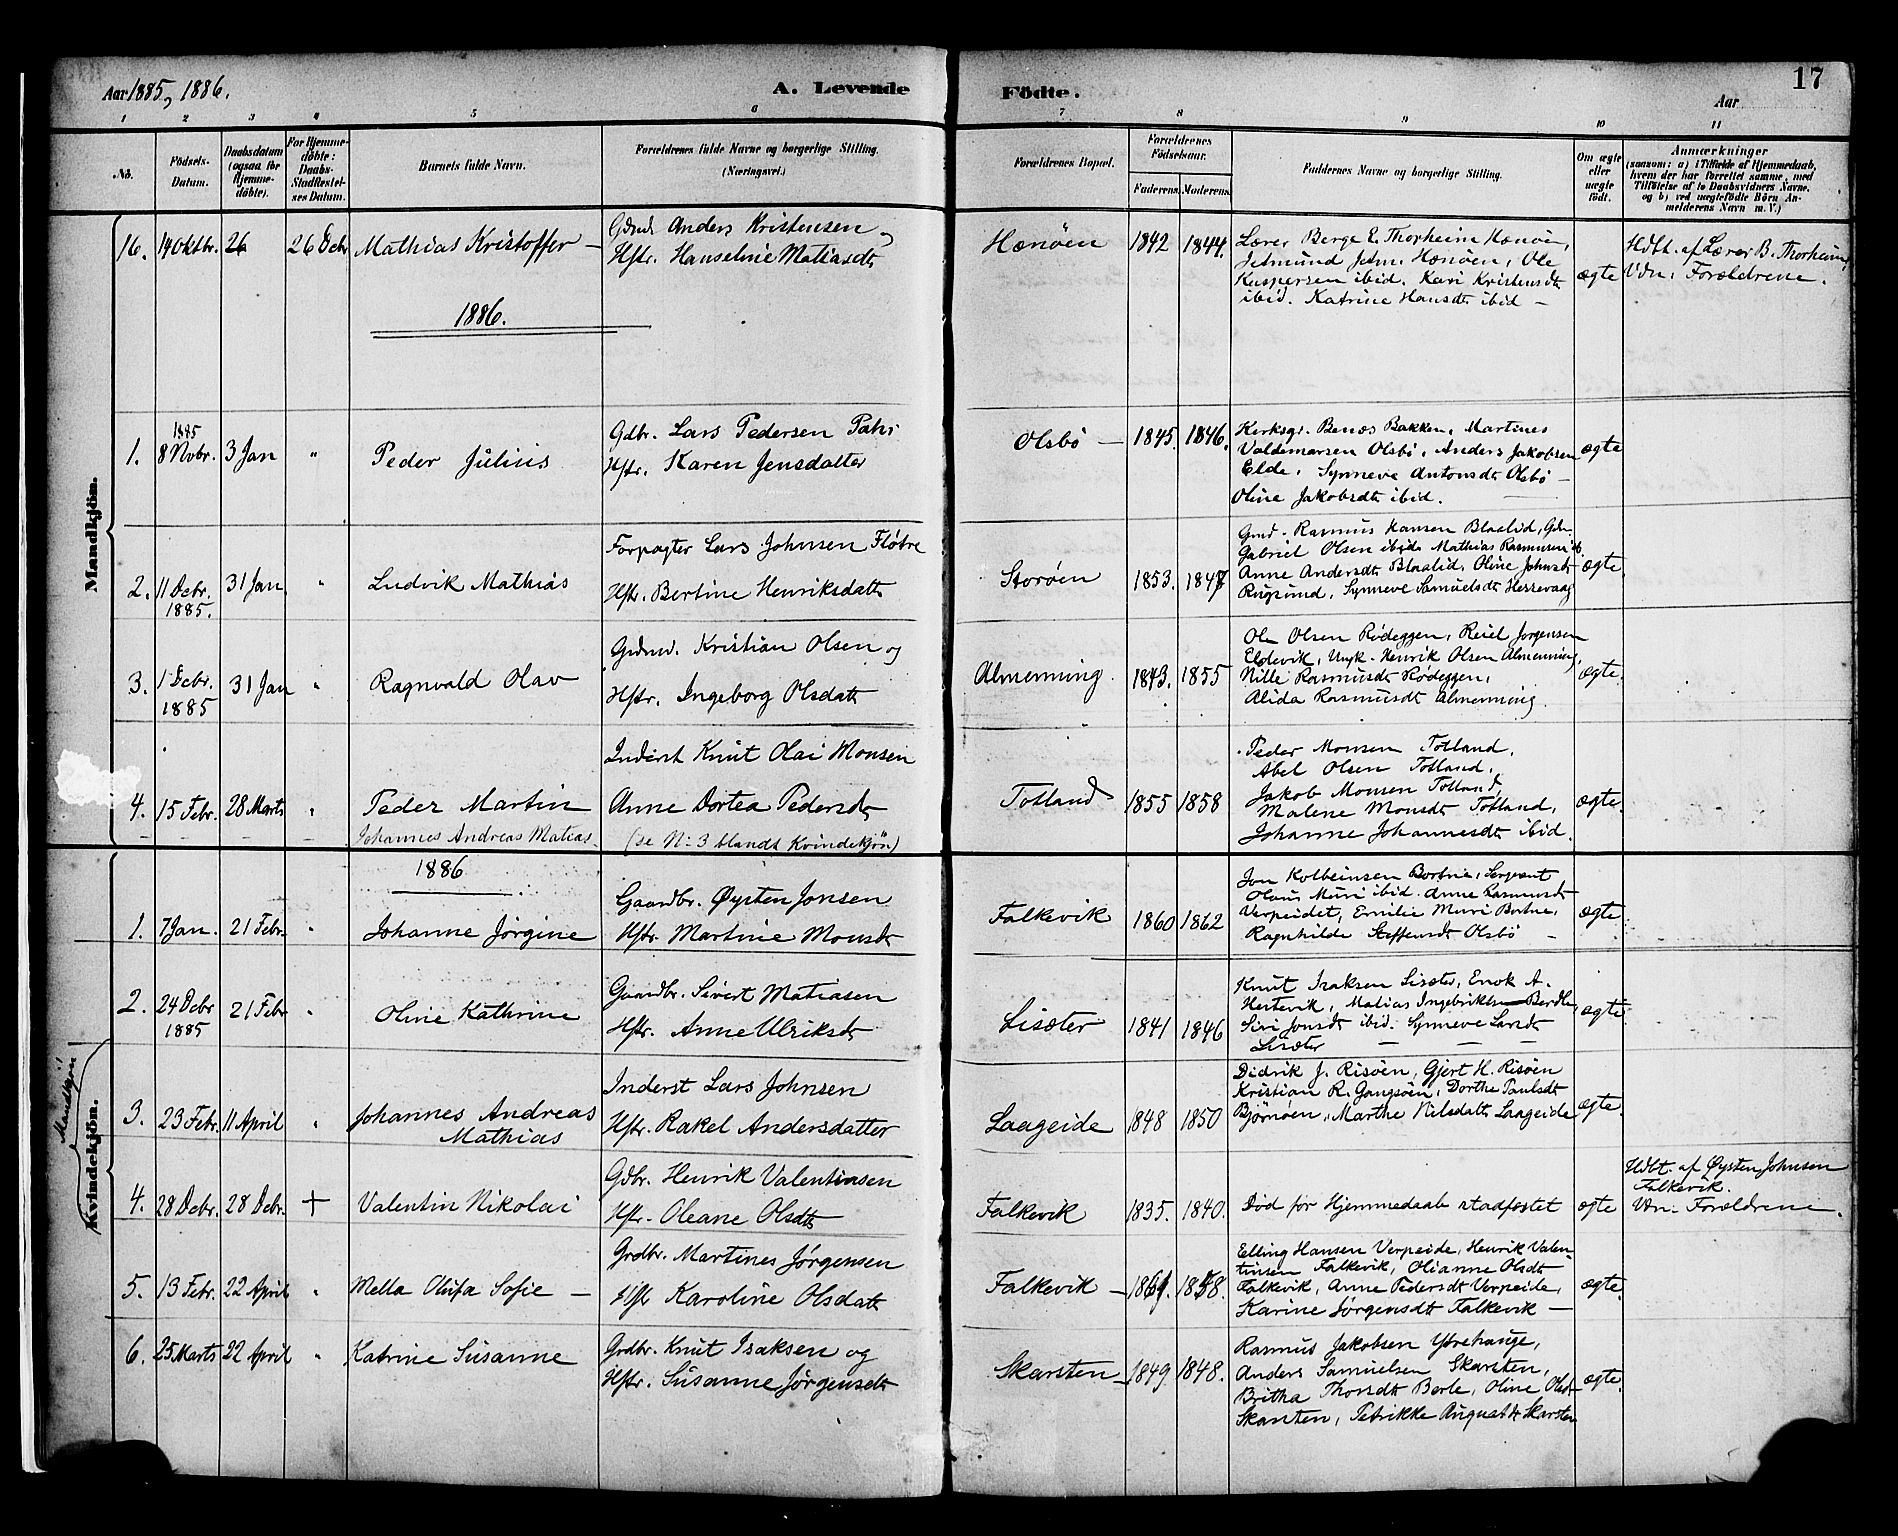 Aar 1885, 1886.
A. Levende
Födte.
Aar
17
1 2 3 4 5 6 7 8 9 10 11
No.
Födsels-
Datum.
Daabsdatum
(ogsaa for
Hjemme-
døbte).
For Hjemme-
døbte:
Daabs-
Stadfæstel-
ses Datum.
Barnets fulde Navn.
Forældrenes fulde Navne og borgerlige Stilling.
(Næringsvei.)
Forældrenes Bopæl.
Forældrenes
Födselsaar.
Faderens. Moderens.
Faddernes Navne og borgerlige Stilling.
Om ægte
eller
uægte
født.
Anmærkninger
(saasom: a) i Tilfælde af Hjemmedaab,
hvem der har forrettet samme, med
Tilföielse af to Daabsvidners Navne,
og b) ved uægtefödte Börn An-
melderens Navn m. V.)
Mandkjön.
16. 14 Oktbr. 26 26 Dcbr Mathias Kristoffer —
Gdmd. Anders Kristensen
Hstr. Hanseline Matiasdtr
Hænöen 1842 1844.
Lærer Berge E. Thorheim Hænöen,
Jetmund Jetm. Hænöen, Ole
Kaspersen ibid. Kari Kristensdtr
ibid. Katrine Hansdtr ibid —
ægte
Hdbt. af Lærer B. Thorheim,
Vdn. Forældrene.
1886.
1. 1885
8 Nvbr. 3 Jan " Peder Julius
Gdbr. Lars Pedersen
Hstr. Karen Jensdatter
Olsbö — 1845. 1846.
Kirksgr. Benæs Bakken, Martines
Valdemarsen Olsbö, Anders Jakobsen
Elde, Synneve Antonsdtr Olsbö —
Oline Jakobsdtr ibid.
ægte
2. 11 Dcbr.
1885. 31 Jan " Ludvik Mathias
Forpagter Lars Johnsen Flötre
Hstr. Bertine Henriksdattr
Storöen 1853. 1847
Gmd. Rasmus Hansen Blaalid, Gdm
Gabriel Olsen ibid. Mathias Rasmusen ib.
Anne Andersdtr Blaalid, Oline Johnsdtr
Rugsund, Synneve Samuelsdtr Hessevaag
ægte.
3. 1 Dcbr.
1885 31 Jan " Ragnvald Olav
Grdmd. Kristian Olsen og
Hstr. Ingeborg Olsdattr
Almenning. 1843. 1855
Ole Olsen Rödeggen, Reiel Jorgensen
Eldevik, Ungk. Henrik Olsen Almenning,
Nille Rasmusdtr Rödeggen,
Alida Rasmusdtr Almenning.
ægte.
4. 15 Febr. 28 Marts " Peder Martin
Inderst Knut Olai Monsen
Anne Dortea Pedersdtr
Totland 1855 1858
Peder Monsen Totland,
Abel Olsen Totland,
Jakob Monsen Totland,
Malene Monsdtr Totland,
Johanne Johannesdtr ibid.
ægte.
Johannes Andreas Matias (se No 3 blandt Kvindekjön)
1886
Mandkjön!
Kvindekjön.
1. 7 Jan. 21 Febr. " Johanne Jörgine
Gaardbr. Øysten Jonsen
Hstr. Martine Monsdtr
Falkevik 1860 1862
Jon Kolbeinsen Bortne, Sergeant
Olaus Muri ibid. Anne Rasmusdtr
Verpeidet, Emilie Muri Bortne,
Ragnhilde Steffensdtr Olsbö —
ægte
2. 24 Dcbr
1885 21 Febr " Oline Kathrine
Gaardbr. Sivert Matiasen
Hstr. Anne Ulriksdtr
Lisæter 1841 1846
Knut Isaksen Lisæter, Enok A.
Hertevik, Matias Ingebriktsen Berdle,
Siri Jonsdtr ibid. Synneve Larsdtr
Lisæter — — —
ægte
3. 23 Febr. 11 April " Johannes Andreas
Mathias
Inderst Lars Johnsen
Hstr. Rakel Andersdatter
Laageide 1848 1850
Didrik J. Risöen, Gjert H. Risöen
Kristian R. Gangsöen, Dorthe Paulsdtr
Björnöen, Marthe Nilsdattr Laageide
ægte.
4. 28 Decbr. 28 Dcbr. + Valentin Nikolai
Gdbr. Henrik Valentinsen
Hstr. Oleane Olsdtr
Falkevik 1835. 1840.
Död för Hjemmedaab stadfæstet
ægte
Hdbt. af Øysten Johnsen
Falkevik.
Vdn. Forældrene.
5. 13 Febr. 22 April " Mella Olufa Sofie —
Grdbr. Martines Jørgensen
Hstr Karoline Olsdattr
Falkevik — 1861. 1858.
Elling Hansen Verpeide, Henrik Valen-
tinsen Falkevik, Olianne Olsdtr
Falkevik, Anne Pedersdtr Verpeide,
Karine Jørgensdtr Falkevik —
ægte.
6. 25 Marts 22 April " Katrine Susanne
Grdbr. Knut Isaksen og
Hstr. Susanne Jørgensdtr
Skarsten — 1849. 1848.
Rasmus Jakobsen Ytrehauge,
Anders Samuelsen Skarsten,
Britha Thorsdtr Berle, Oline Olsdtr
Skarsten, Petrikke Augustdtr Skarsten
ægte.